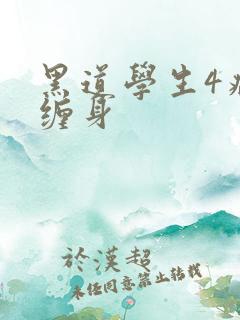 黑道學生4
缠身
於漢超
未经同意禁止转载